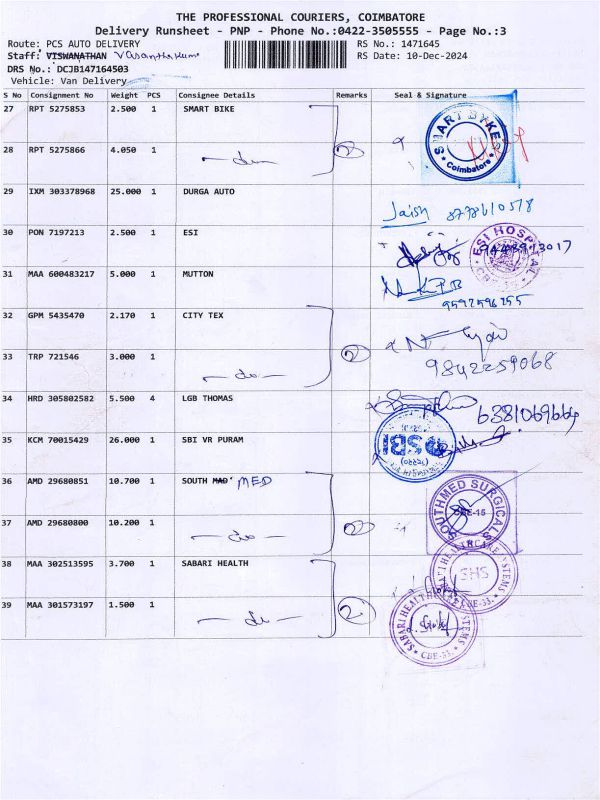 THE PROFESSIONAL COURIERS, COIMBATORE
Delivery Runsheet - PNP - Phone No.:0422-3505555 - Page No.:3
Route: PCS AUTO DELIVERY RS No.: 1471645
Staff: VISWANATHAN Vasanthakumar RS Date: 10-Dec-2024
DRS No.: DCJB147164503
Vehicle: Van Delivery
S No Consignment No Weight PCS Consignee Details Remarks Seal & Signature
27 RPT 5275853 2.500 1 SMART BIKE
SMART BYKES Coimbatore
28 RPT 5275866 4.050 1 — do — 2
29 IXM 303378968 25.000 1 DURGA AUTO
Jaish
30 PON 7197213 2.500 1 ESI
ESI HOSPITAL
31 MAA 600483217 5.000 1 MUTTON
32 GPM 5435470 2.170 1 CITY TEX
33 TRP 721546 3.000 1 — do — 2 9842259068
34 HRD 305802582 5.500 4 LGB THOMAS
6381069664
35 KCM 70015429 26.000 1 SBI VR PURAM
SBI
36 AMD 29680851 10.700 1 SOUTH MAD' MED
SOUTHMED SURGICALS CBE-15
37 AMD 29680800 10.200 1 — do — 2
38 MAA 302513595 3.700 1 SABARI HEALTH
SABARI HEALTHCARE SYSTEMS SHS CBE-33.
39 MAA 301573197 1.500 1 — do — 2
SABARI HEALTHCARE SYSTEMS CBE-33.